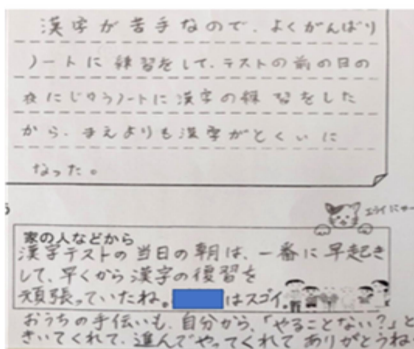 漢字が苦手なので、よくがんばり
ノートに練習をして、テストの前の日の
夜にじゆうノートに漢字の練習をした
から、まえよりも漢字がとくいに
なった。
エライにゃー
家の人などから
漢字テストの当日の朝は、一番に早起き
して、早くから漢字の復習を
頑張っていたね。はスゴイ。
おうちの手伝いも、自分から、「やることない？」と
きいてくれて、進んでやってくれてありがとうね